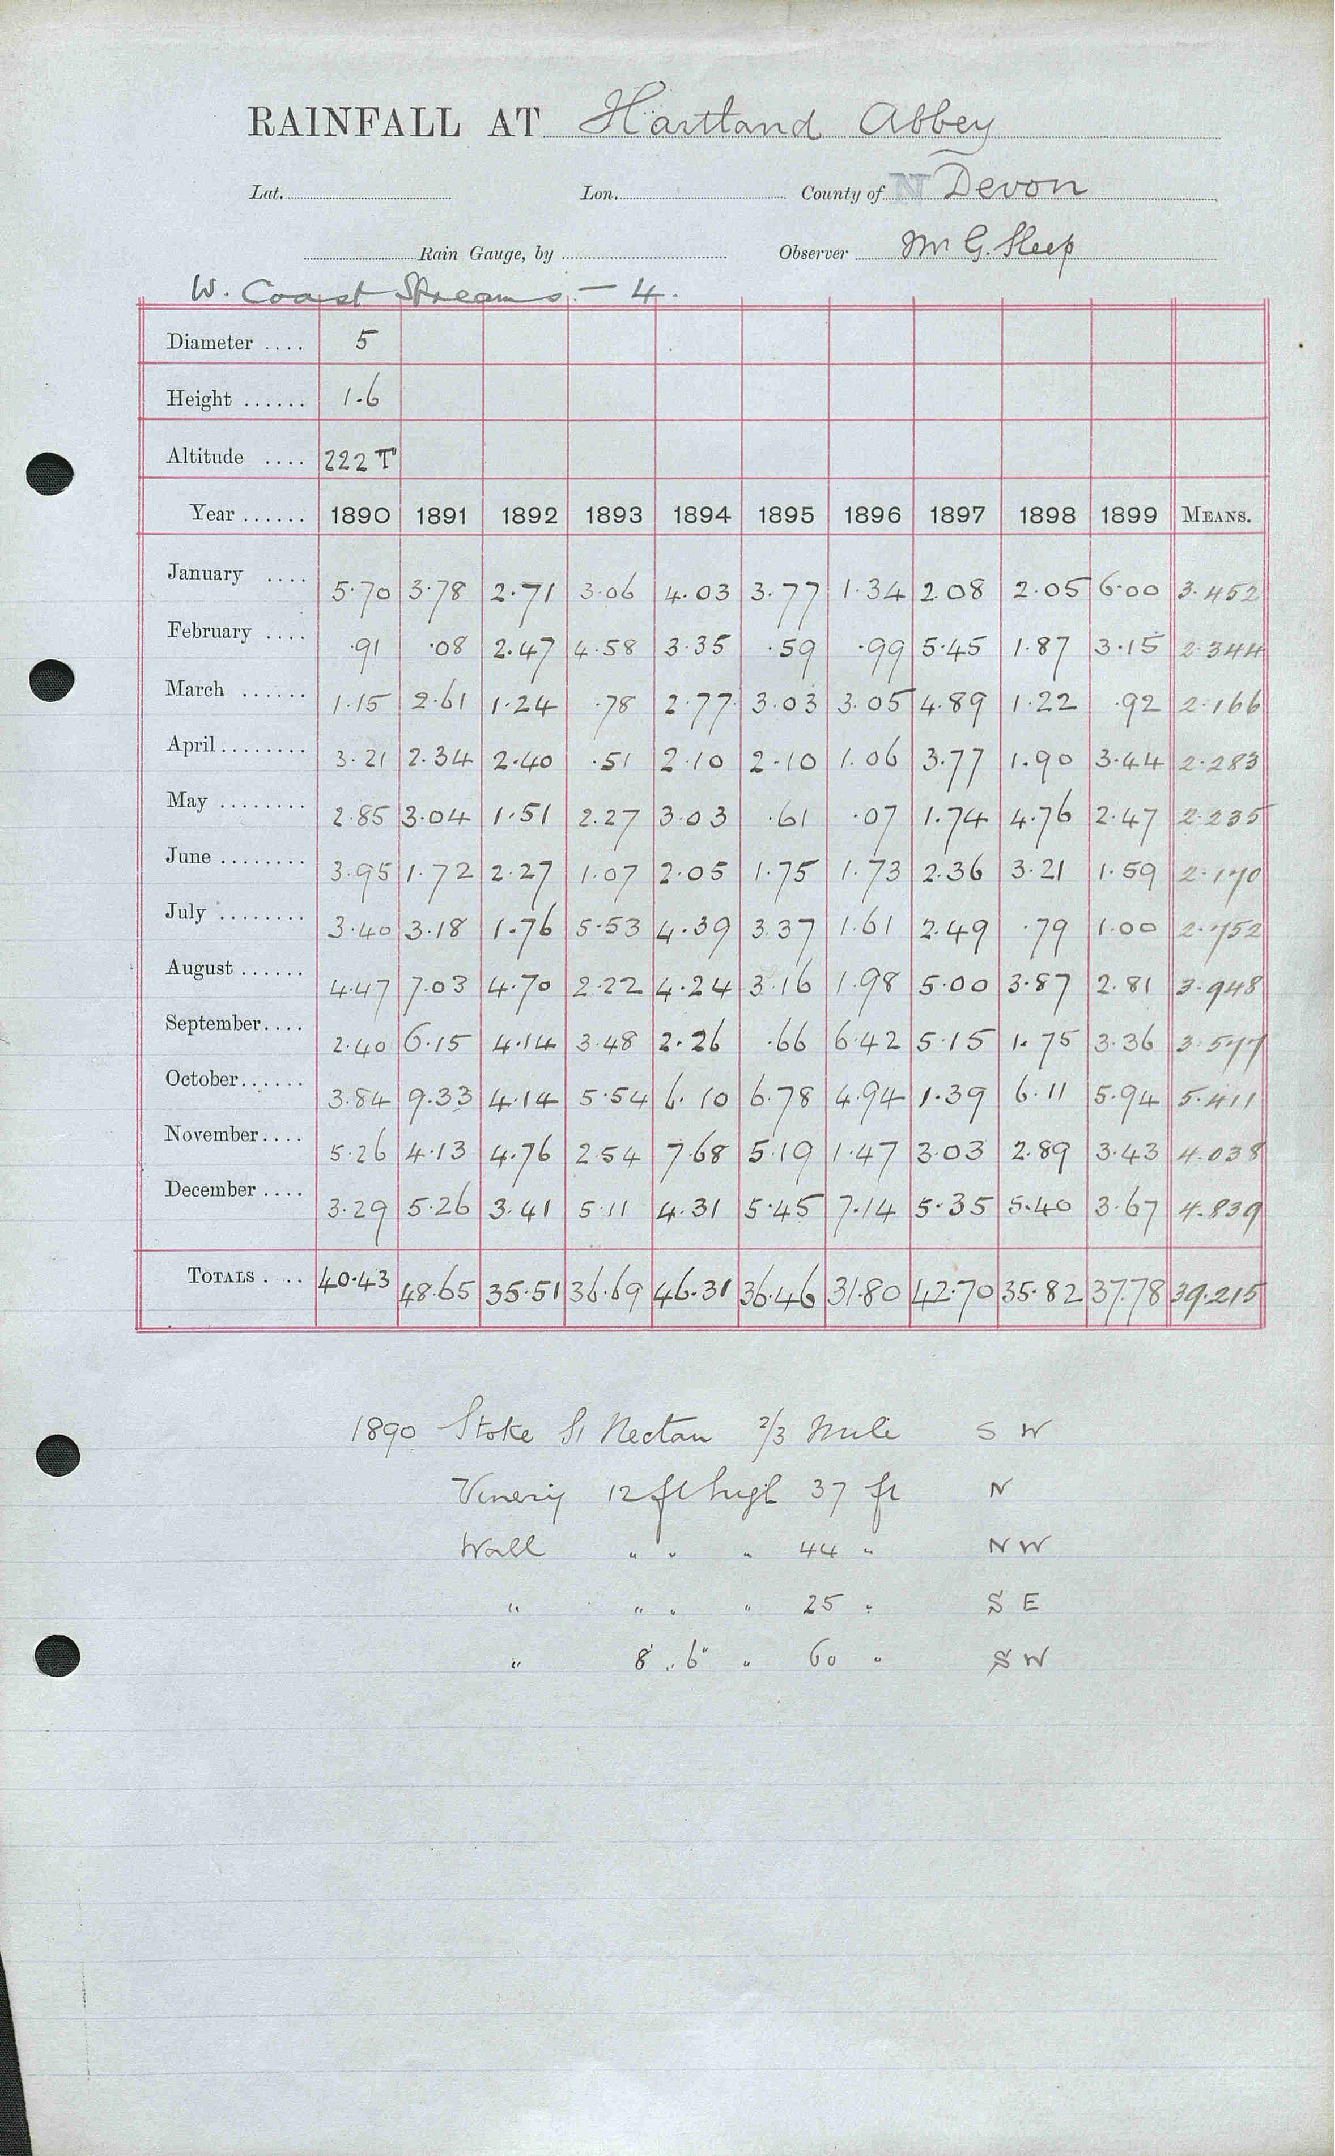 RAINFALL AT Hartland Abbey
Lat. Lon. County of N Devon
Rain Gauge, by Observer Mr G. Sleep
W. Coast Streams. – 4.
Diameter .... 5
Height ...... 1.6
Altitude .... 222 T
Year ...... 1890 1891 1892 1893 1894 1895 1896 1897 1898 1899 MEANS.
January .... 5.70 3.78 2.71 3.06 4.03 3.77 1.34 2.08 2.05 6.00 3.452
February .... .91 .08 2.47 4.58 3.35 .59 .99 5.45 1.87 3.15 2.344
March ...... 1.15 2.61 1.24 .78 2.77 3.03 3.05 4.89 1.22 .92 2.166
April ........ 3.21 2.34 2.40 .51 2.10 2.10 1.06 3.77 1.90 3.44 2.283
May ........ 2.85 3.04 1.51 2.27 3.03 .61 .07 1.74 4.76 2.47 2.235
June ........ 3.95 1.72 2.27 1.07 2.05 1.75 1.73 2.36 3.21 1.59 2.170
July ........ 3.40 3.18 1.76 5.53 4.39 3.37 1.61 2.49 .79 1.00 2.752
August ...... 4.47 7.03 4.70 2.22 4.24 3.16 1.98 5.00 3.87 2.81 3.948
September.... 2.40 6.15 4.14 3.48 2.26 .66 6.42 5.15 1.75 3.36 3.577
October...... 3.84 9.33 4.14 5.54 6.10 6.78 4.94 1.39 6.11 5.94 5.411
November.... 5.26 4.13 4.76 2.54 7.68 5.19 1.47 3.03 2.89 3.43 4.038
December .... 3.29 5.26 3.41 5.11 4.31 5.45 7.14 5.35 5.40 3.67 4.839
TOTALS .... 40.43 48.65 35.51 36.69 46.31 36.46 31.80 42.70 35.82 37.78 39.215
1890 Stoke St Nectan 2/3 Mile S W
Vinery 12 ft high 37 ft N
Wall " " " 44 " N W
" " " " 25 " S E
" 8 " 6" " 60 " S W